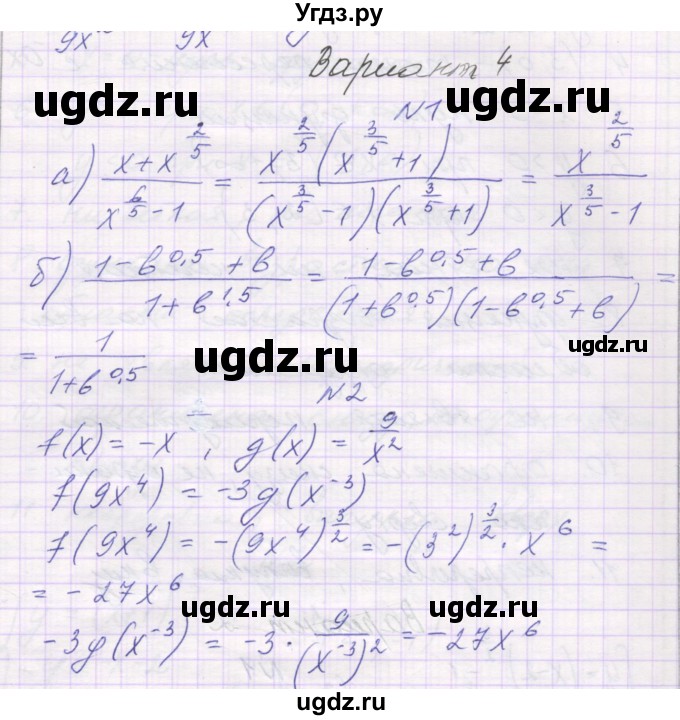 Угдз.ру
9x 9x
Вариант 4
ugdz.ru ugdz.ru
N1
а) (x+x^(2/5))/(x^(6/5)-1) = (x^(2/5)(x^(3/5)+1))/((x^(3/5)-1)(x^(3/5)+1)) = x^(2/5)/(x^(3/5)-1)
б) (1-b^0,5+b)/(1+b^1,5) = (1-b^0,5+b)/((1+b^0,5)(1-b^0,5+b)) =
= 1/(1+b^0,5)
ugdz.ru ugdz.ru
N2
f(x) = -x , g(x) = 9/x^2
f(9x^4) = -3g(x^-3)
f(9x^4) = -(9x^4)^(3/2) = -(3^2)^(3/2) · x^6 =
= -27x^6
ugdz.ru ugdz.ru
-3g(x^-3) = -3 · 9/(x^-3)^2 = -27x^6
ugdz.ru
Угдз.ру